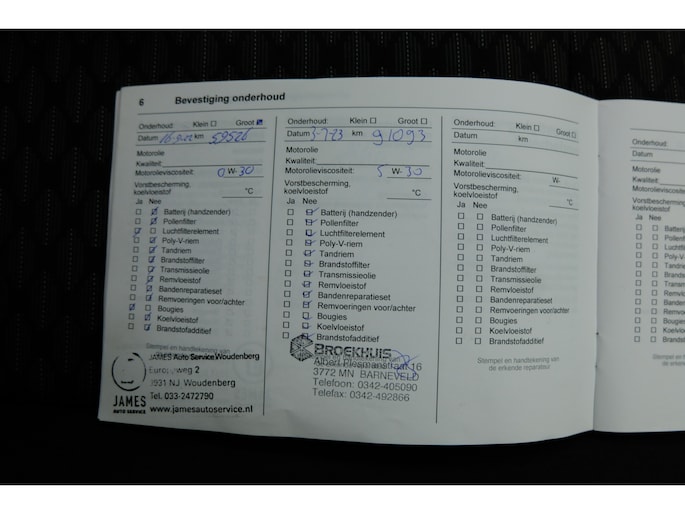 6 Bevestiging onderhoud
Onderhoud: Klein ☐ Groot ☑
Datum km 59526
Motorolie
Kwaliteit:
Motorolieviscositeit: 0 W- 30
Vorstbescherming,
koelvloeistof °C
Ja Nee
Batterij (handzender)
Pollenfilter
Luchtfilterelement
Poly-V-riem
Tandriem
Brandstoffilter
Transmissieolie
Remvloeistof
Bandenreparatieset
Remvoeringen voor/achter
Bougies
Koelvloeistof
Brandstofadditief
Stempel en handtekening van
JAMES Auto Service Woudenberg
Europaweg 2
3931 NJ Woudenberg
Tel. 033-2472790
www.jamesautoservice.nl
JAMES
AUTO SERVICE
Onderhoud: Klein ☐ Groot ☐
Datum 3-7-23 km 91093
Motorolie
Kwaliteit:
Motorolieviscositeit: 5 W- 30
Vorstbescherming,
koelvloeistof °C
Ja Nee
Batterij (handzender)
Pollenfilter
Luchtfilterelement
Poly-V-riem
Tandriem
Brandstoffilter
Transmissieolie
Remvloeistof
Bandenreparatieset
Remvoeringen voor/achter
Bougies
Koelvloeistof
Brandstofadditief
BROEKHUIS
Albert Plesmanstraat 16
3772 MN BARNEVELD
Telefoon: 0342-405090
Telefax: 0342-492866
Onderhoud: Klein ☐ Groot ☐
Datum km
Motorolie
Kwaliteit:
Motorolieviscositeit: W-
Vorstbescherming,
koelvloeistof °C
Ja Nee
Batterij (handzender)
Pollenfilter
Luchtfilterelement
Poly-V-riem
Tandriem
Brandstoffilter
Transmissieolie
Remvloeistof
Bandenreparatieset
Remvoeringen voor/achter
Bougies
Koelvloeistof
Brandstofadditief
Stempel en handtekening van
de erkende reparateur
Onderhoud:
Datum
Motorolie
Kwaliteit:
Motorolieviscositeit
Vorstbescherming,
koelvloeistof
Ja Nee